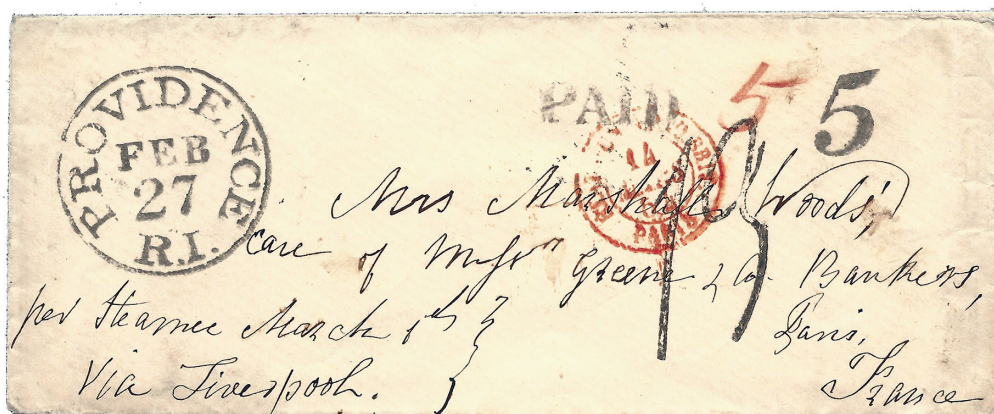 PROVIDENCE
FEB
27
R.I.
PAID
5
5
14
PARIS
Mrs Marshall Woods,
Care of Messrs Greene & Co. Bankers,
Paris,
France
per Steamer March 1st
Via Liverpool.